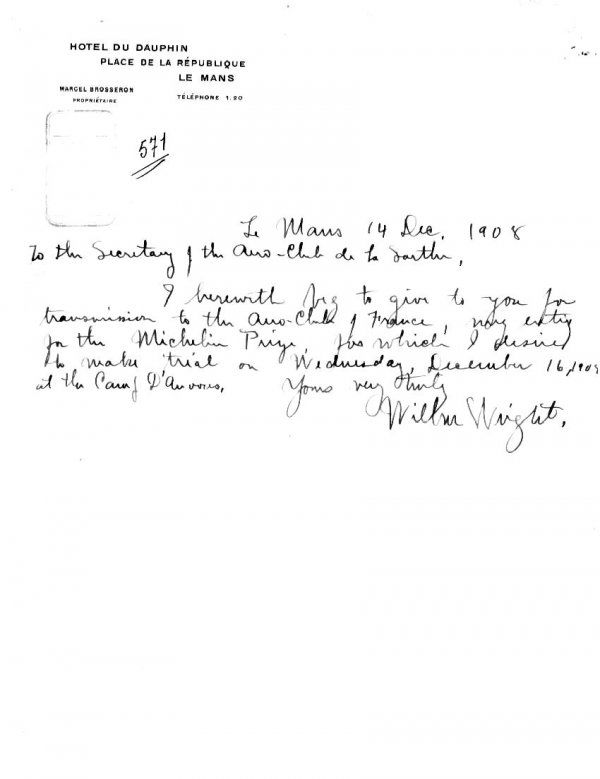 HOTEL DU DAUPHIN
PLACE DE LA RÉPUBLIQUE
LE MANS
MARCEL BROSSERON
PROPRIÉTAIRE
TÉLÉPHONE 1.20
571
Le Mans 14 Dec. 1908
To the Secretary of the Aero-Club de la Sarthe,
I herewith beg to give to you for
transmission to the Aero-Club of France, my entry
for the Michelin Prize, for which I desire
to make trial on Wednesday, December 16, 1908
at the Camp D'Auvours.
Yours very truly
Wilbur Wright.